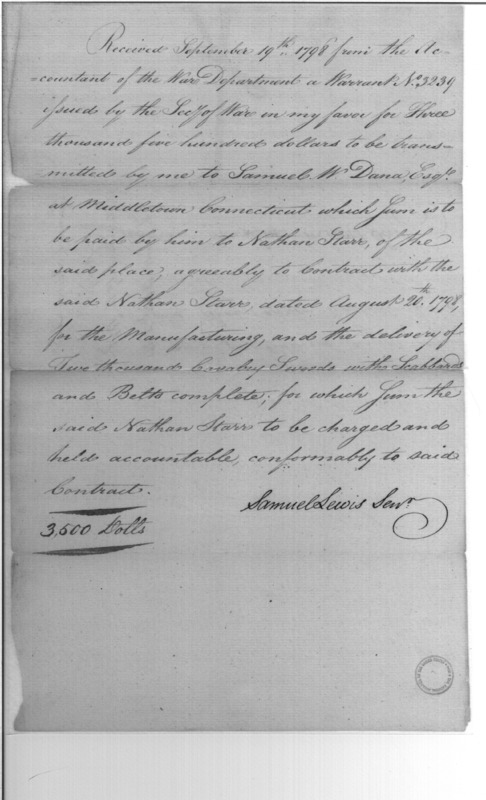 Received September 19th. 1798 from the Ac-
=countant of the War Department a Warrant No. 3239
issued by the Secy. of War in my favor for Three
thousand five hundred dollars to be trans-
mitted by me to Samuel W Dana, Esqr.
at Middletown Connecticut which Sum is to
be paid by him to Nathan Starr, of the
said place; agreeably to Contract with the
said Nathan Starr, dated August 20th. 1798,
for the Manufacturing, and the delivery of
Two thousand Cavalry Swords with Scabbards
and Belts complete; for which Sum the
said Nathan Starr to be charged and
held accountable, conformably to said
Contract.
Samuel Lewis Senr.
3,500 Dolls